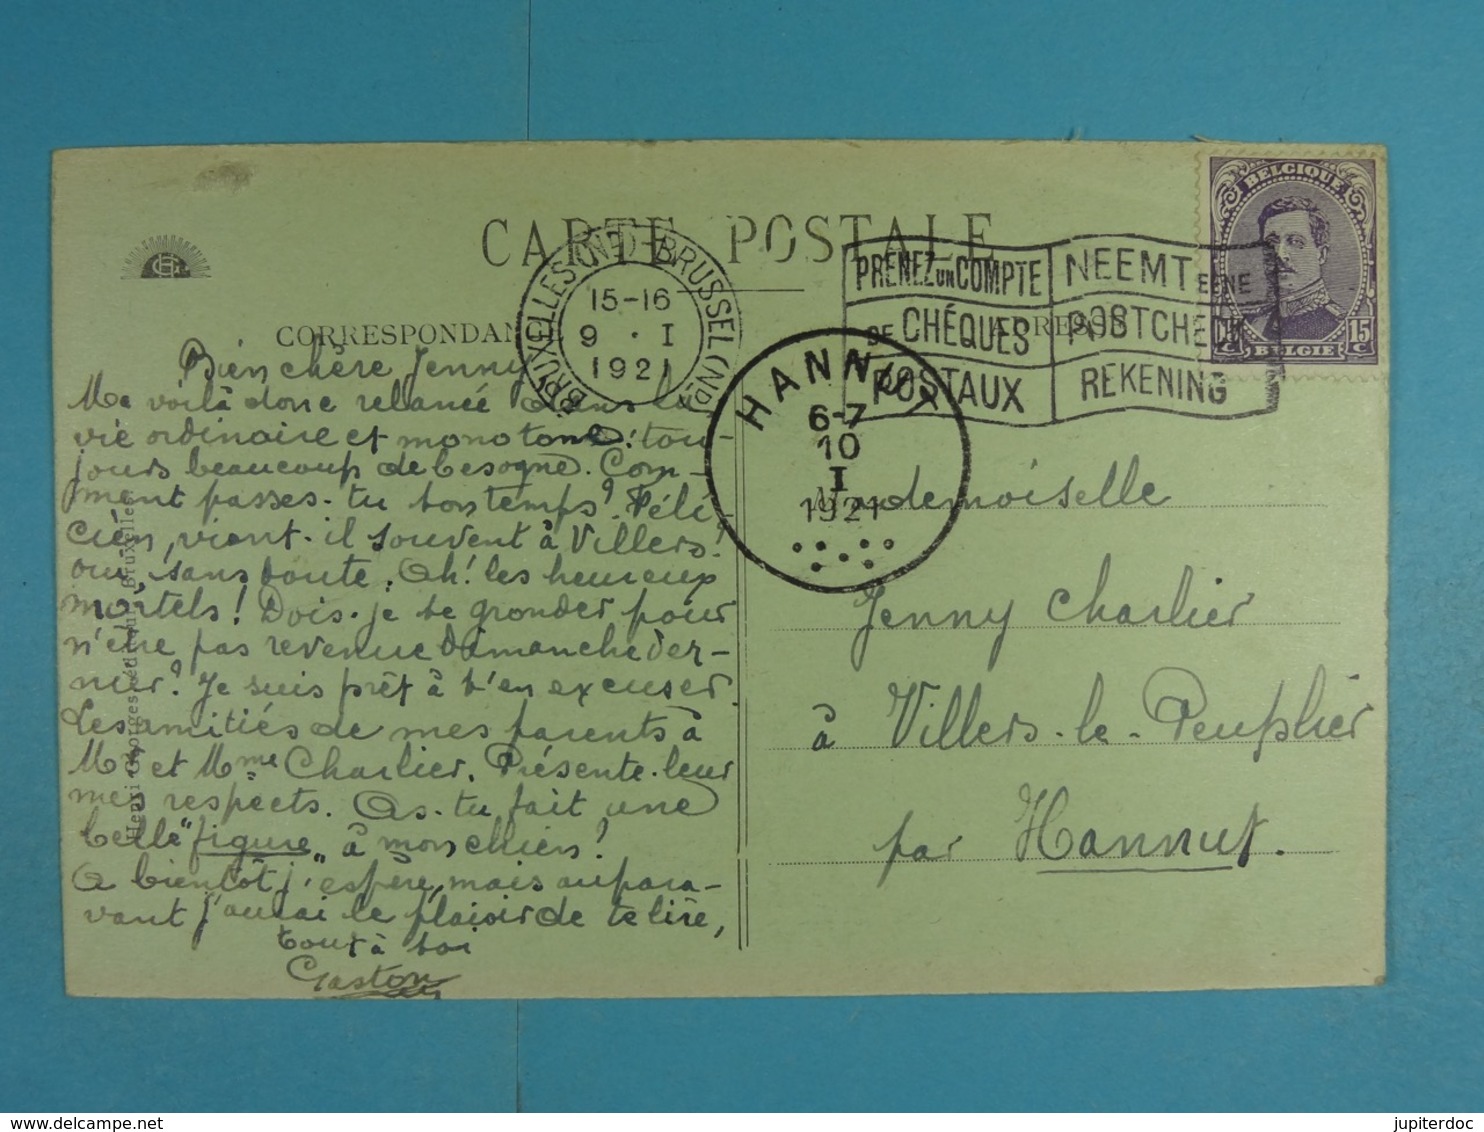 CARTE POSTALE
CORRESPONDAN
ADRESSE
BRUXELLES (ND) - BRUSSEL (ND)
15-16
9 · I
1921
PRENEZ UN COMPTE
DE CHÉQUES
POSTAUX
NEEMT EENE
POSTCHECK
REKENING
BELGIQUE
15 C
15 C
BELGIE
HANNUT
6-7
10
I
1921
Bien chère Jenny
Me voilà donc relancé dans la
vie ordinaire et monotone: tou-
jours beaucoup de besogne. Com-
ment passes-tu ton temps? Féli-
cien, vient-il souvent à Villers?
oui, sans doute. Oh! les heureux
mortels! Dois-je te gronder pour
n'être pas revenue dimanche der-
nier? Je suis prêt à t'en excuser
Les amitiés de mes parents à
Mr et Mme Charlier. Présente-leur
mes respects. As-tu fait une
belle "figure" à mon chien!
A bientôt j'espère, mais aupara-
vant j'aurai le plaisir de te lire,
tout à toi
Gaston
Mademoiselle
Jenny Charlier
à Villers-le-Peuplier
par Hannut.
Henri Georges, éditeur, Bruxelles
jupiterdoc